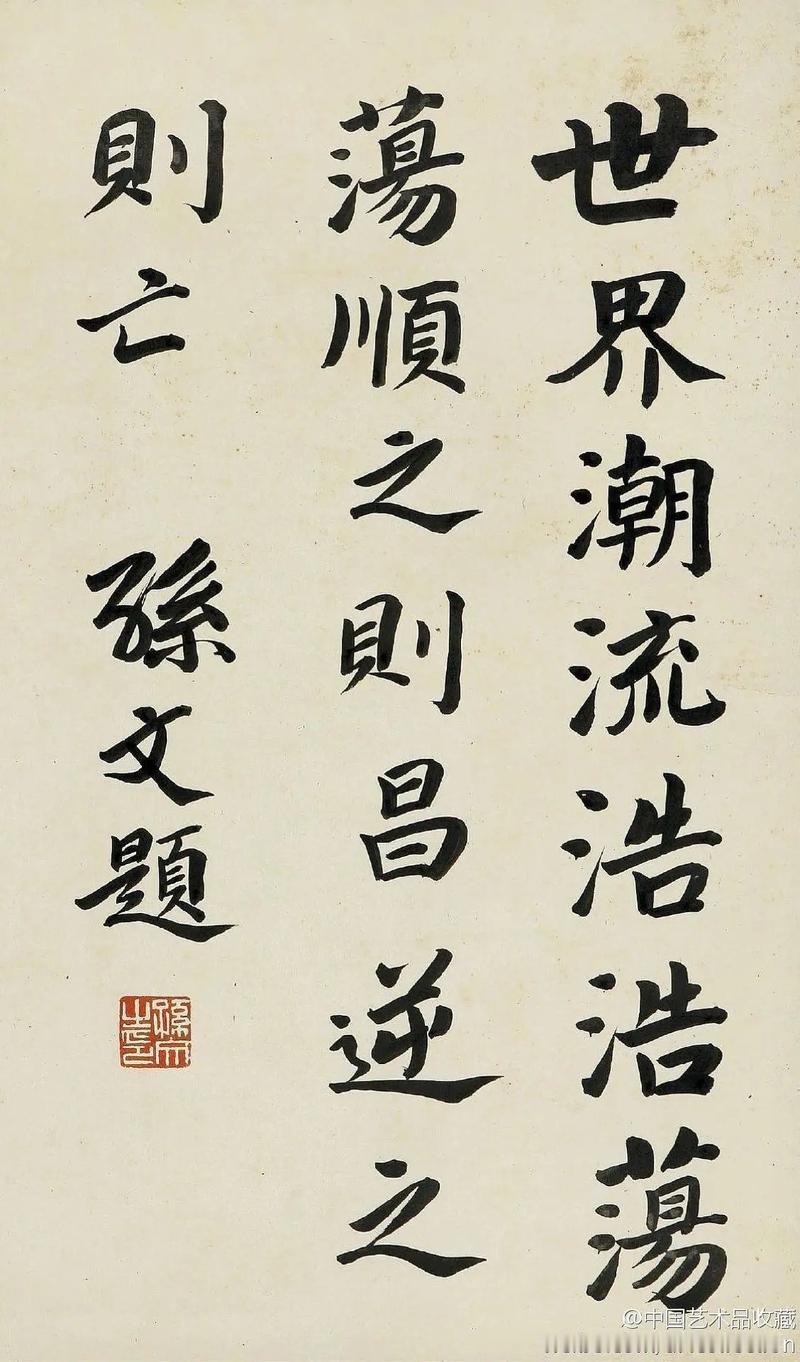 世界潮流浩浩蕩
蕩順之則昌逆之
則亡 孫文題
孫文之印
@中国艺术品收藏